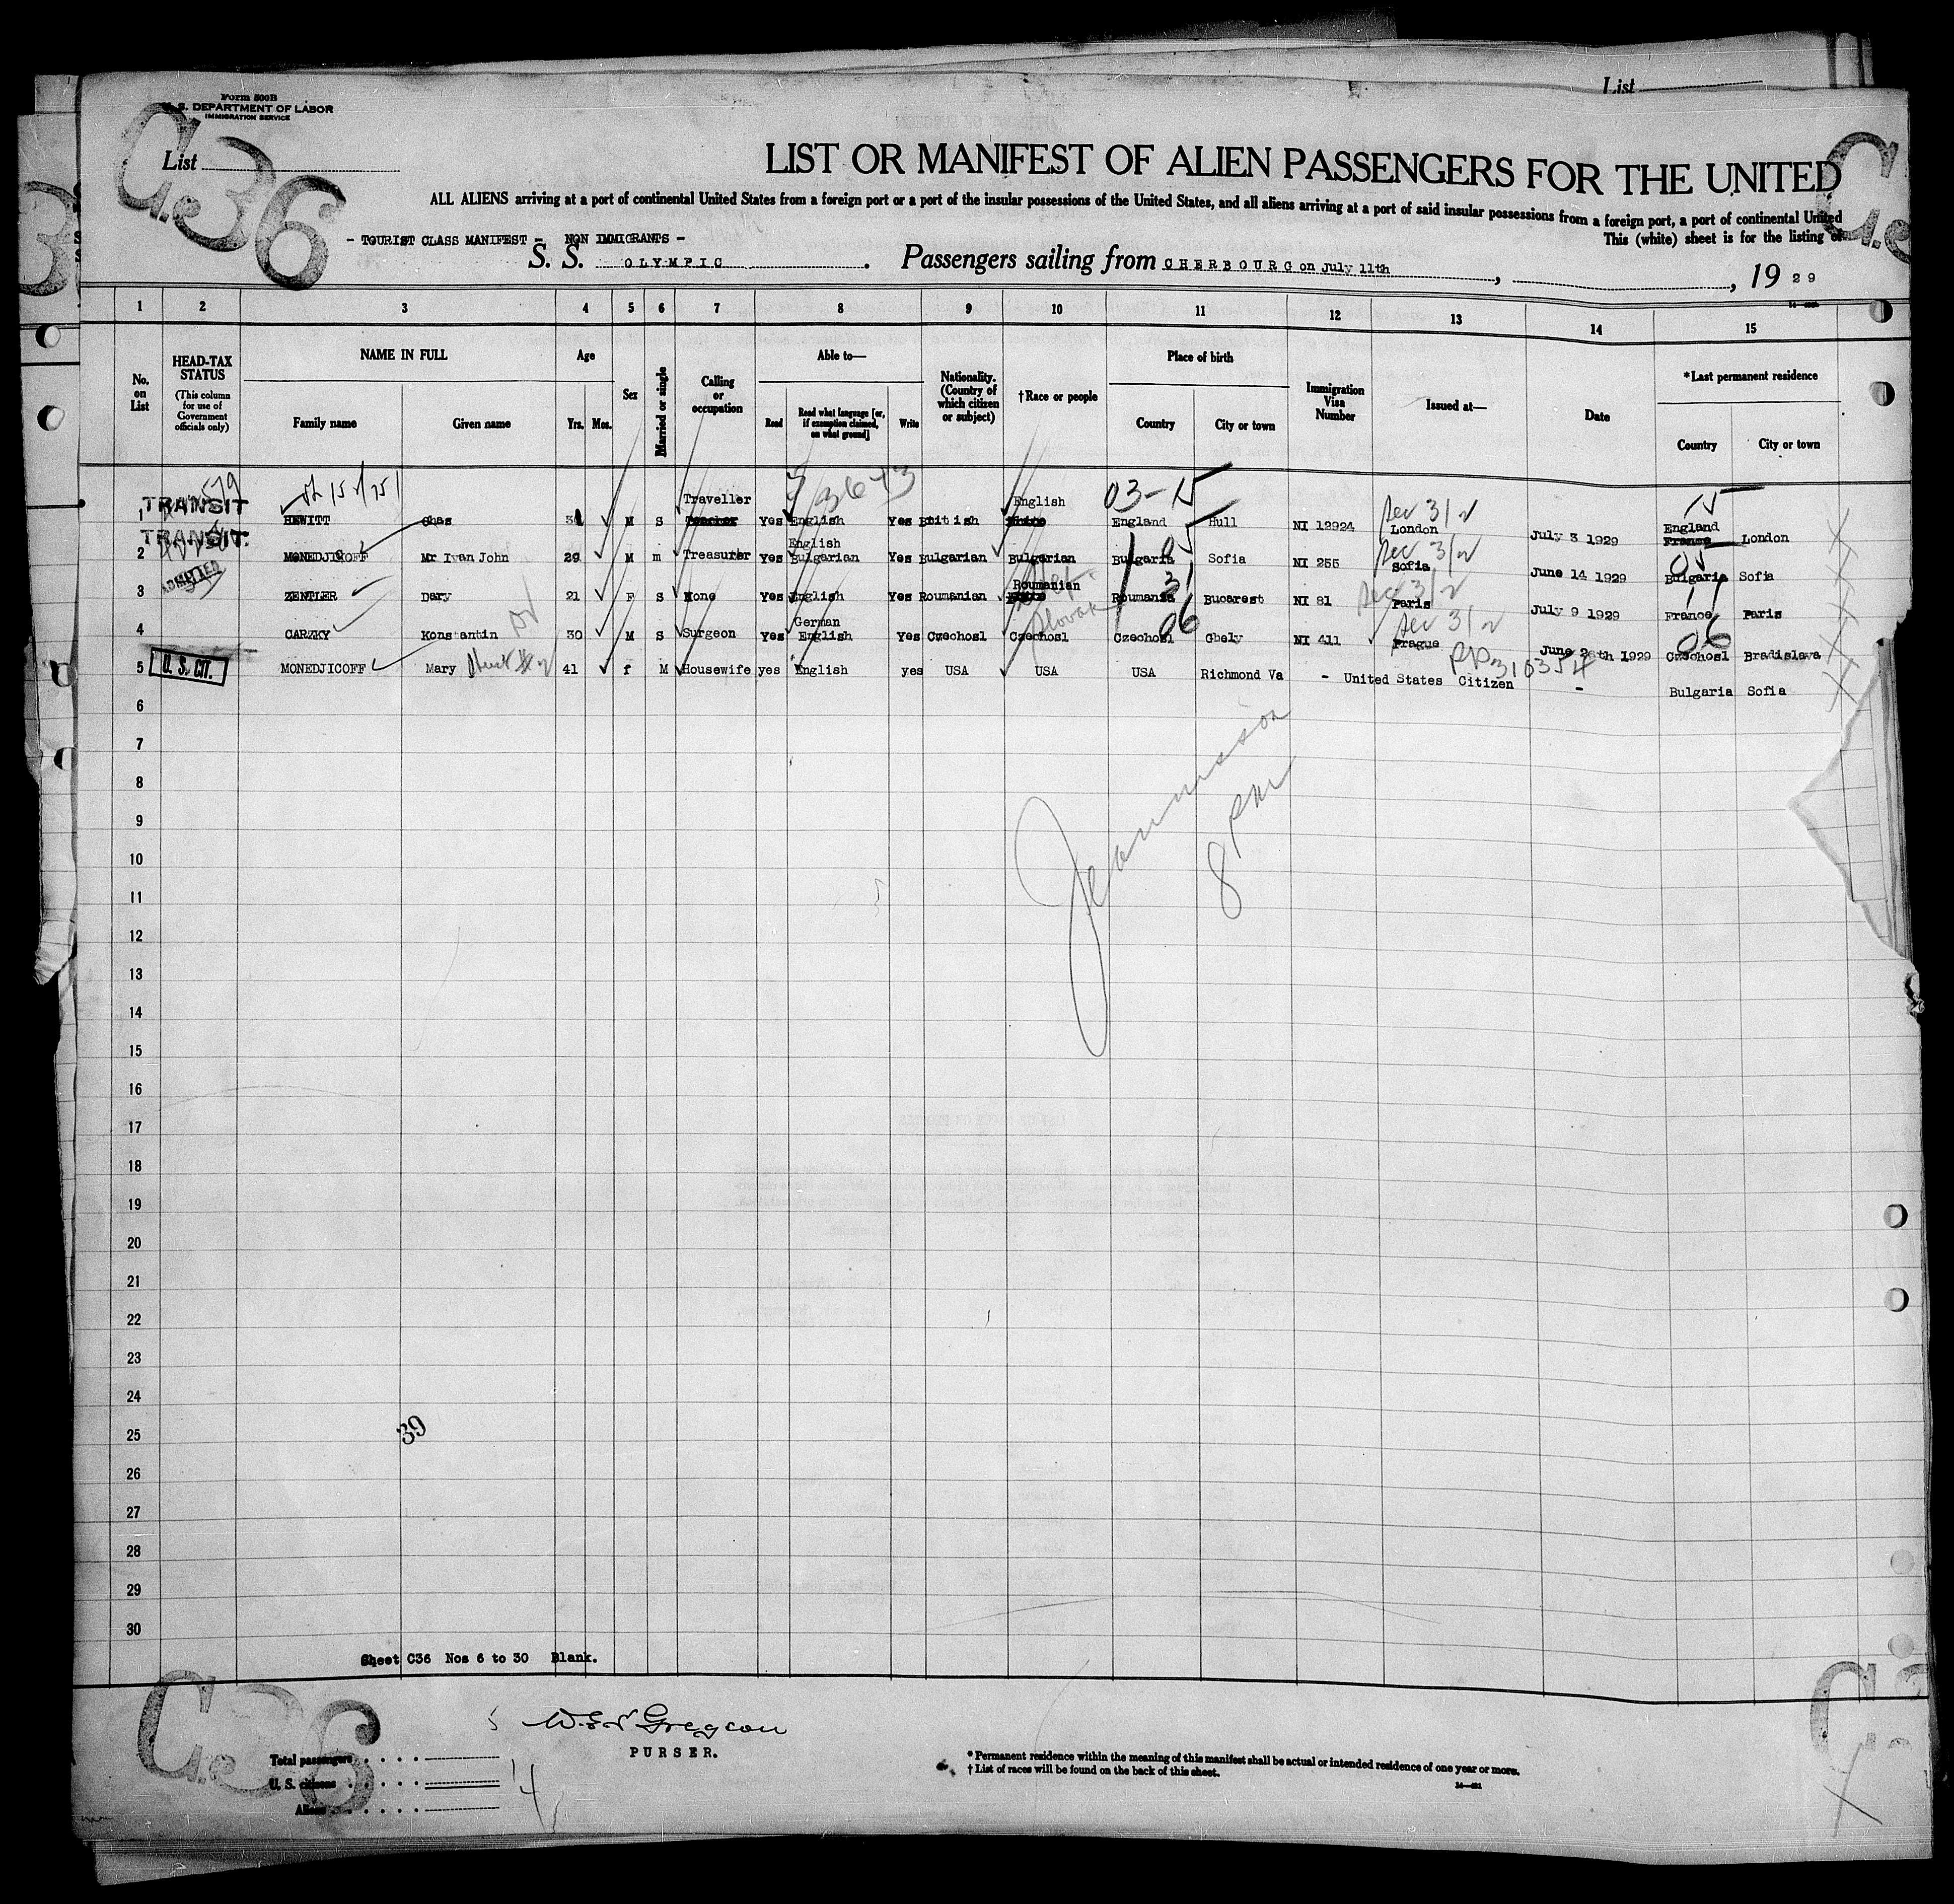 List
Form 500B
U. S. DEPARTMENT OF LABOR
IMMIGRATION SERVICE
C36
List
LIST OR MANIFEST OF ALIEN PASSENGERS FOR THE UNITED
ALL ALIENS arriving at a port of continental United States from a foreign port or a port of the insular possessions of the United States, and all aliens arriving at a port of said insular possessions from a foreign port, a port of continental United
This (white) sheet is for the listing of
- TOURIST CLASS MANIFEST - NON IMMIGRANTS -
S. S. OLYMPIC. Passengers sailing from CHERBOURG on July 11th, , 19 29
1 2 3 4 5 6 7 8 9 10 11 12 13 14 15
No. on List
HEAD-TAX STATUS (This column for use of Government officials only)
NAME IN FULL
Family name Given name
Age
Yrs. Mos.
Sex
Married or single
Calling or occupation
Able to—
Read Read what language [or, if exemption claimed, on what ground] Write
Nationality. (Country of which citizen or subject)
†Race or people
Place of birth
Country City or town
Immigration Visa Number
Issued at—
Date
*Last permanent residence
Country City or town
03-15
Traveller English
TRANSIT
1 HEWITT Chas M S Teacher Yes English Yes British England Hull NI 12924 London July 3 1929 England France London
TRANSIT
English
2 MONEDJICOFF Mr Ivan John 29 M m Treasurer Yes Bulgarian Yes Bulgarian Bulgarian Bulgaria Sofia NI 255 Sofia June 14 1929 Bulgaria Sofia
ADMITTED
Roumanian
3 ZENTLER Dary 21 F S None Yes English Yes Roumanian Roumania Bucarest NI 81 Paris July 9 1929 France Paris
German Slovak
4 CARZKY Konstantin 30 M S Surgeon Yes English Yes Czechosl Czechosl Czechosl Gbely NI 411 Prague June 28th 1929 Czechosl Bradislava
PP310354
5 U. S. CIT. MONEDJICOFF Mary 41 f M Housewife yes English yes USA USA USA Richmond Va - United States Citizen - Bulgaria Sofia
6
7
8
9
10
11
12
13
14
15
16
17
18
19
20
21
22
23
24
25
26
27
28
29
30
8 pm
39
Sheet C36 Nos 6 to 30 Blank.
C36
PURSER.
Total passengers
U. S. citizens 1
Aliens 4
* Permanent residence within the meaning of this manifest shall be actual or intended residence of one year or more.
† List of races will be found on the back of this sheet.